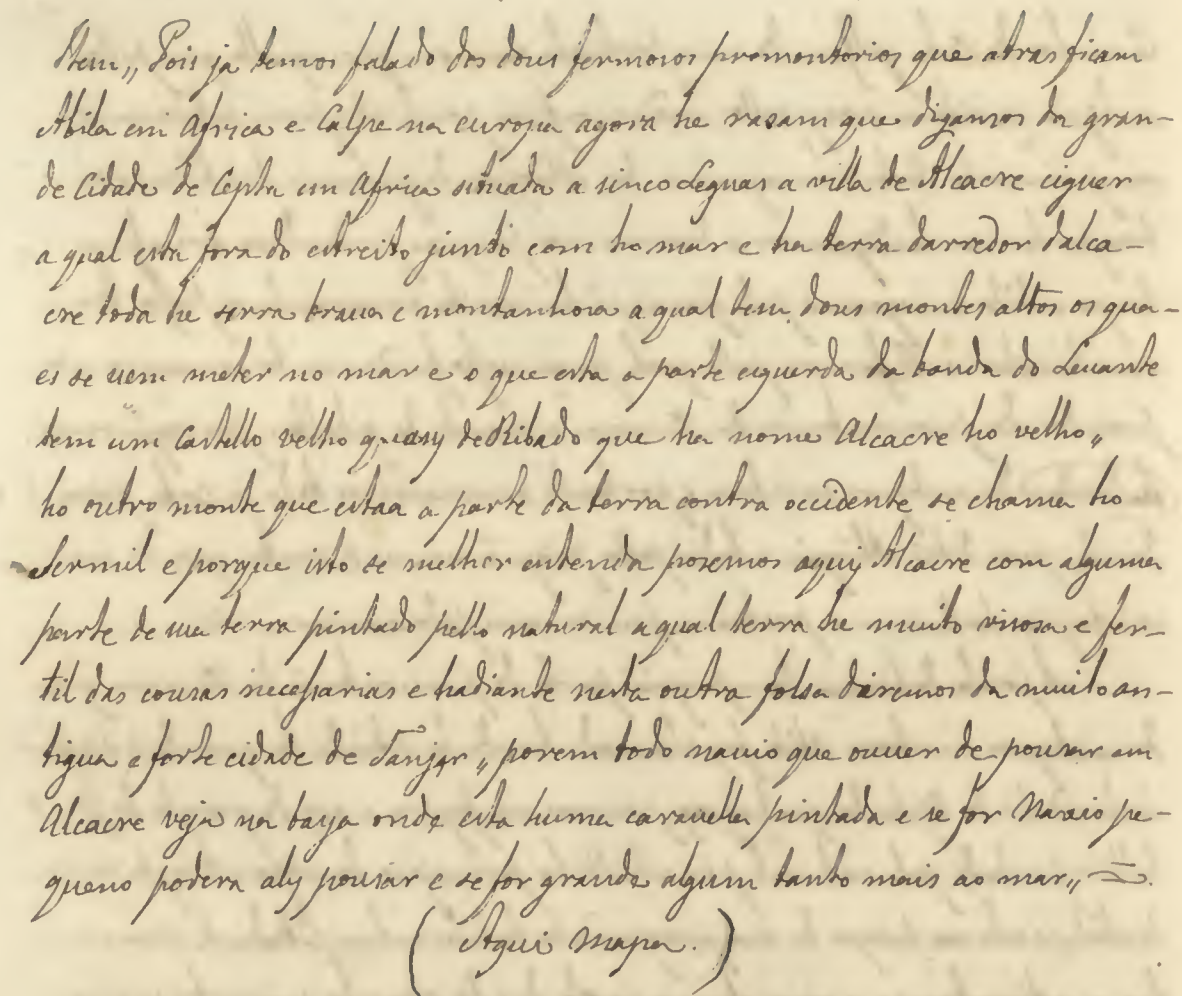 Item,, Pois ja temos falado dos dous fermosos promontorios que atras ficam
Abila em Africa e Calpe na europa agora he rasam que digamos da gran-
de Cidade de Cepta em Africa situada a sinco Leguas a villa de Alcacre ceguer
a qual esta fora do estreito junto com ho mar e ha terra darredor dalca-
cre toda he serra braua e montanhosa a qual tem dous montes altos os qua-
es se uem meter no mar e o que esta a parte esquerda da banda do Leuante
tem um Castello velho quasy deRibado que ha nome Alcacre ho velho,,
ho outro monte que estaa a parte da terra contra occidente se chama ho
Sermil e porque isto se melhor entenda posemos aquy Alcacre com alguma
parte de sua terra pintado pello natural a qual terra he muito visosa e fer-
til das cousas necessarias e hadiante nesta outra folha diremos da muito an-
tigua e forte cidade de Tanjer,, porem todo nauio que ouuer de pousar em
Alcacre veja na baya onde esta huma carauella pintada e se for Nauio pe-
queno podera aly pousar e se for grande algum tanto mais ao mar,, =
(Aqui mapa.)